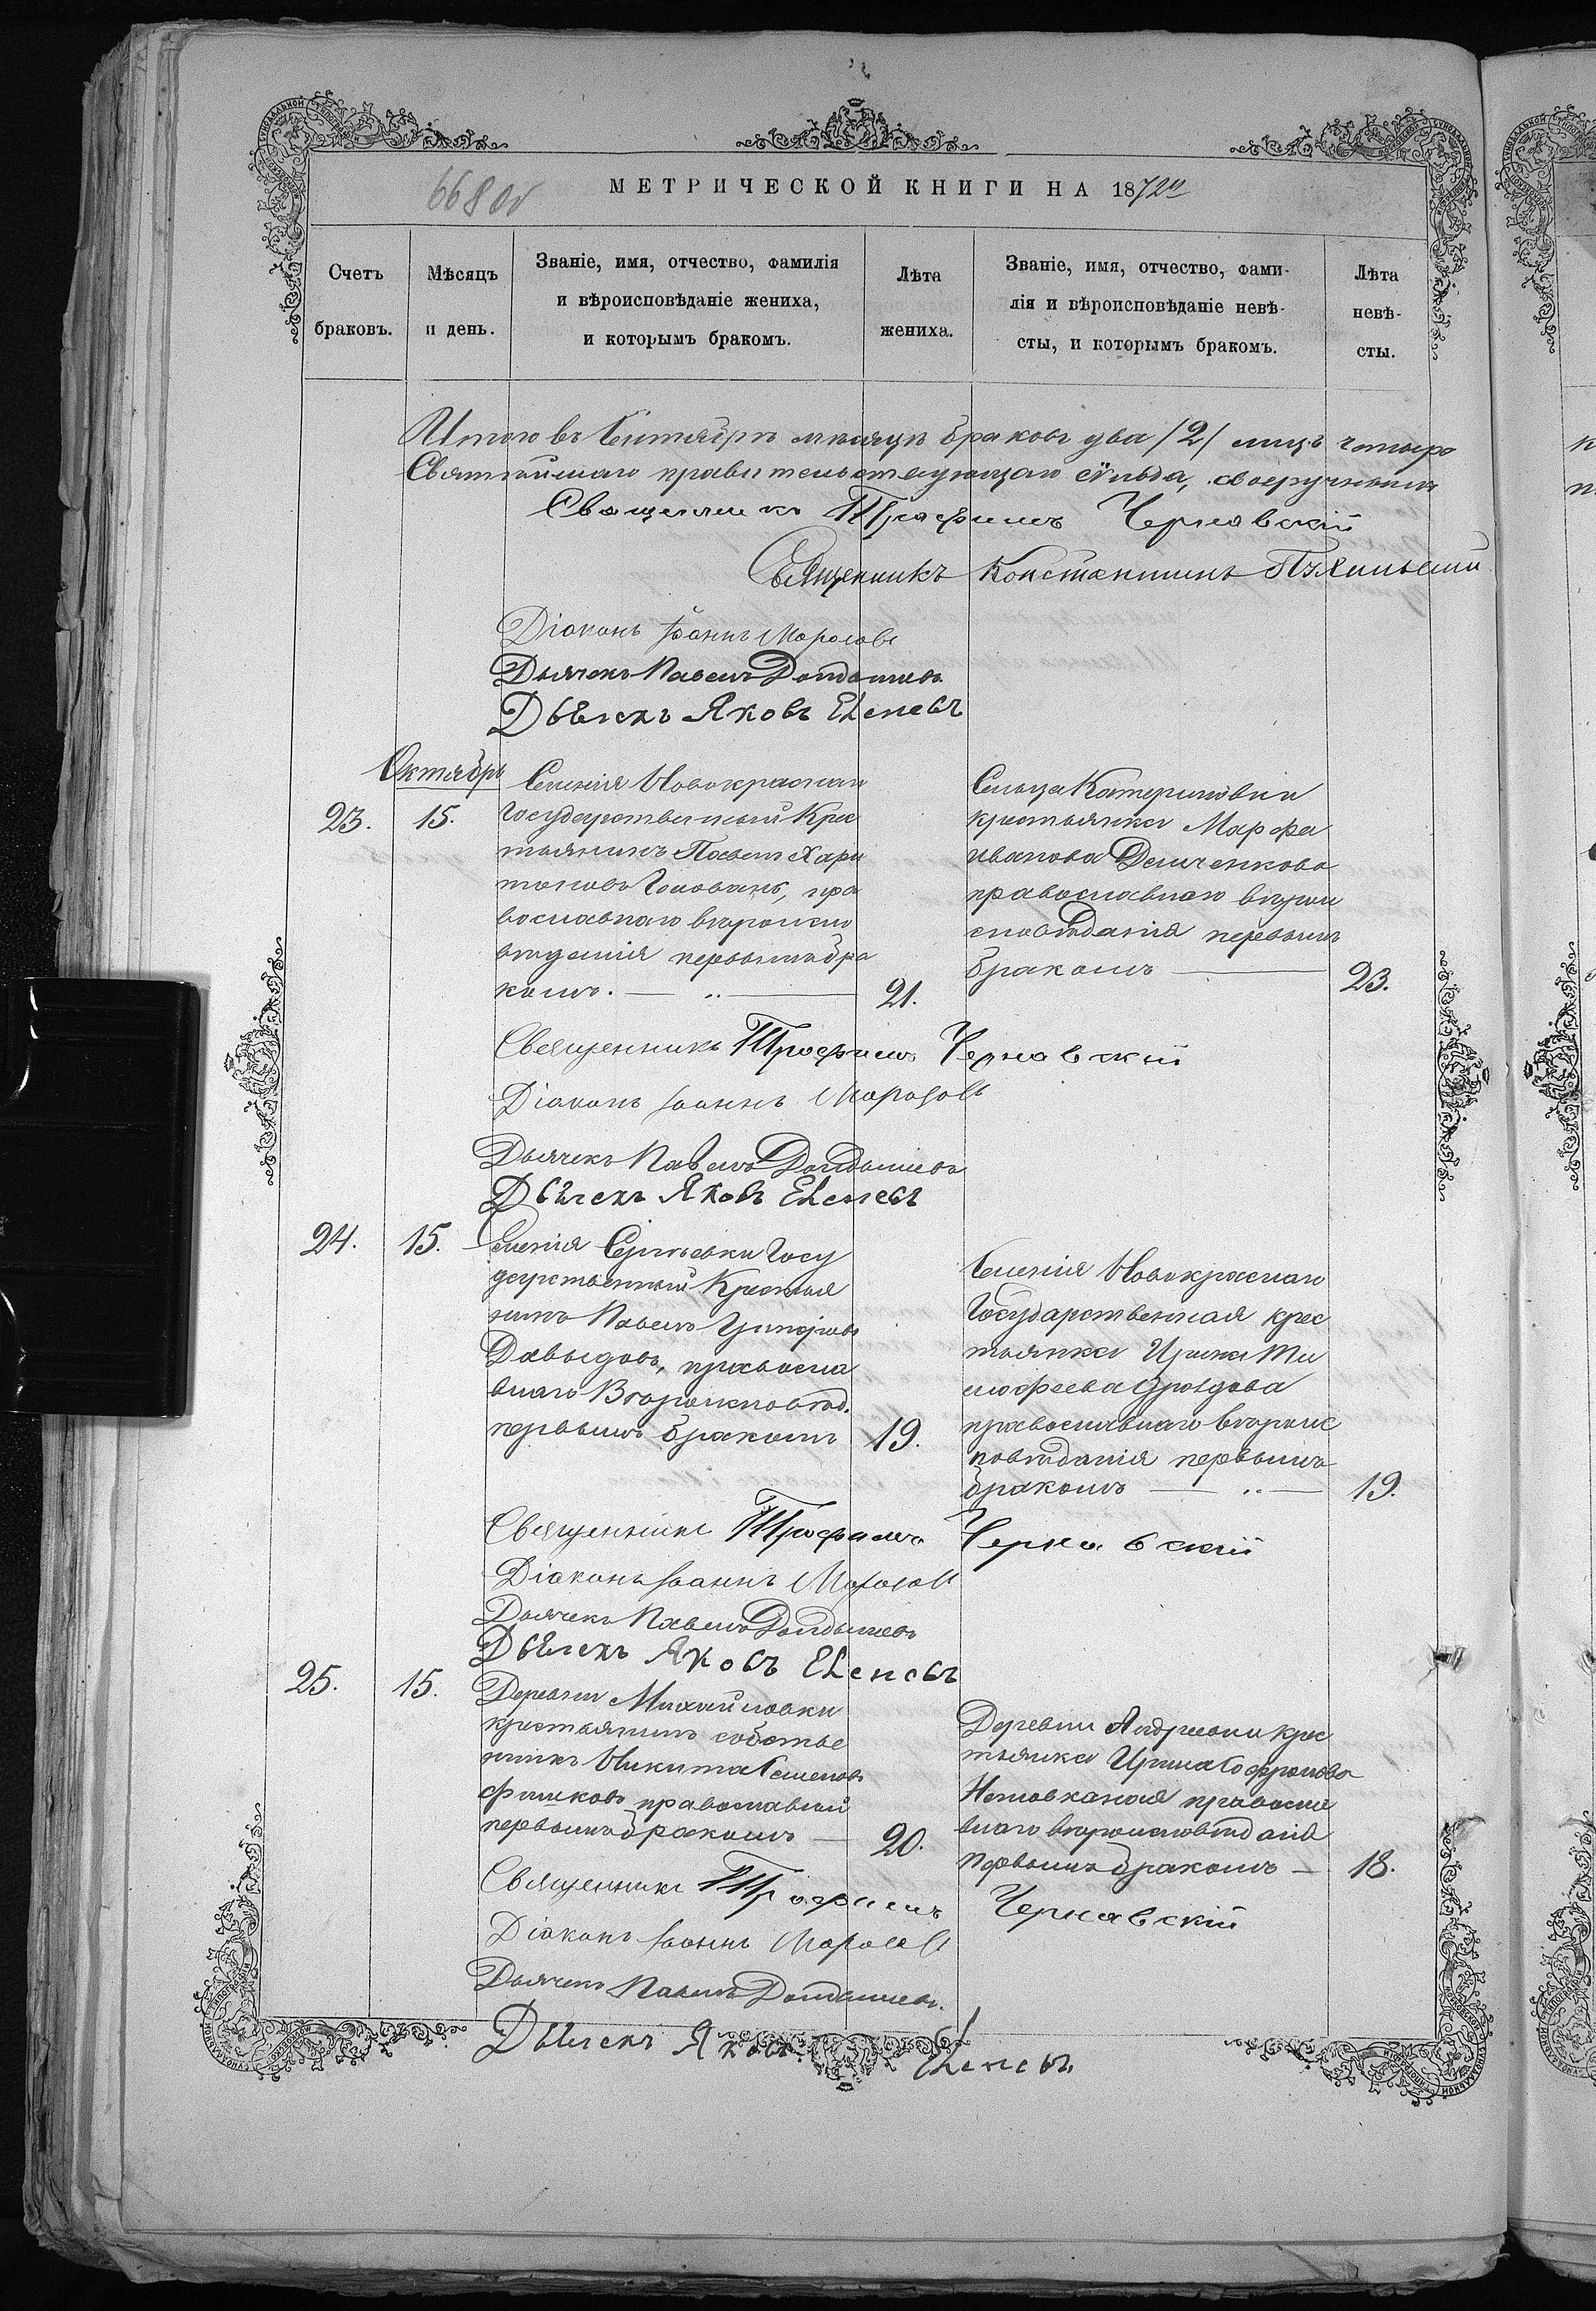 668 об
МЕТРИЧЕСКОЙ КНИГИ НА 1872й
Счетъ
браковъ.
Мѣсяцъ
и день.
Званіе, имя, отчество, фамилія
и вѣроисповѣданіе жениха,
и которымъ бракомъ.
Лѣта
жениха.
Званіе, имя, отчество, фами-
лія и вѣроисповѣданіе невѣ-
сты, и которымъ бракомъ.
Лѣта
невѣ-
сты.
Итого въ Сентябрѣ мѣсяцѣ браковъ два /2/ лицъ четыре
Святѣйшаго правительствующаго сѵнода, своеручнымъ
Священникъ Трофимъ Чернавскій
Священникъ Константинъ
Діаконъ Іоаннъ Морозовъ
Дьячекъ Павелъ
Дьячекъ Яковъ
Октябрь
23.
15.
Селенія Новокраснаго
Государственный Крес
тьянинъ Павелъ Хари
тоновъ Головань, пра
вославнаго вѣроиспо
вѣданія первымъ бра
комъ. — „ —
21.
Сельца Катериновки
крестьянка Марфа
Иванова Демченкова
православнаго вѣрои
сповѣданія первымъ
бракомъ —
23.
Священникъ Трофимъ Чернавскій
Діаконъ Іоаннъ Морозовъ
Дьячекъ Павелъ
Дьячекъ Яковъ
24.
15.
Селенія Сергѣевки Госу
дарственный Крестья
нинъ Павелъ Григорьевъ
Давыдовъ, правосла
внаго Вѣроисповѣд.
первымъ бракомъ
19.
Селенія Новокраснаго
Государственная крес
тьянка Ирина Ти
мофеева
православнаго вѣроис
повѣданія первымъ
бракомъ — „ —
19.
Священникъ Трофимъ Чернавскій
Діаконъ Іоаннъ Морозовъ
Дьячекъ Павелъ
Дьячекъ Яковъ
25.
15.
Деревни Михайловки
крестьянинъ собстве
нникъ Никита Семеновъ
православный
первымъ бракомъ —
20.
Деревни Андреевки крес
тьянка Ирина Софронова
правосла
внаго вѣроисповѣданія
первымъ бракомъ —
18.
Священникъ Трофимъ Чернавскій
Діаконъ Іоаннъ Морозовъ
Дьячекъ Павелъ
Дьячекъ Яковъ